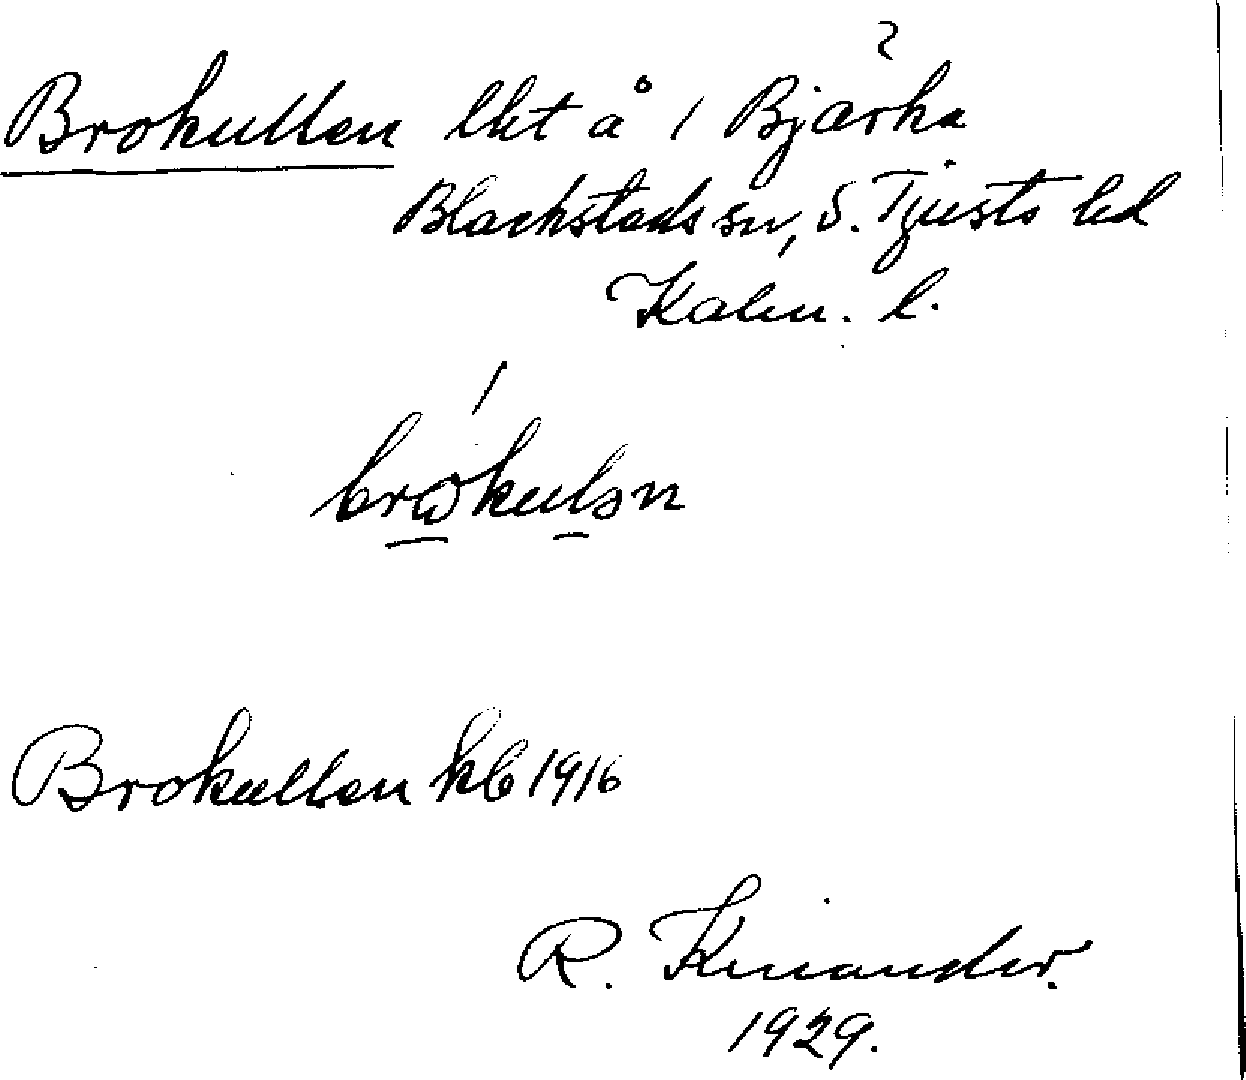 Brokullen lht å 1 Bjärka
Blackstads sn, S. Tjusts hd
Kalm. l.
brωkulən
Brokullen kb 1916
R. Kinander.
1929.